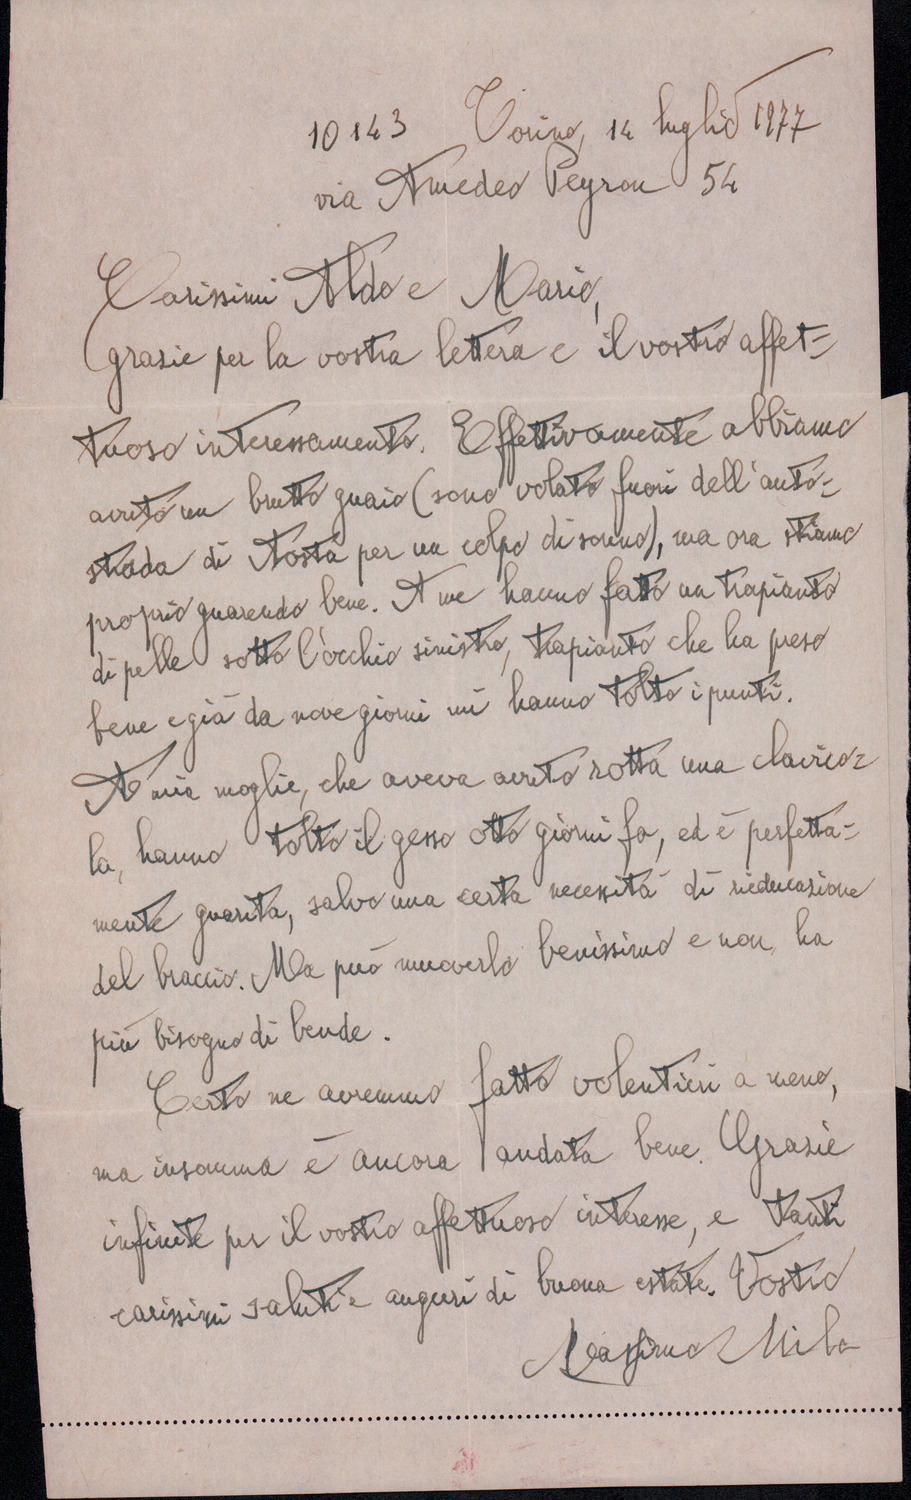 10143 Torino, 14 luglio 1977
via Amedeo Peyron 54
Carissimi Aldo e Mario,
grazie per la vostra lettera e il vostro affet=
tuoso interessamento. Effettivamente abbiamo
avuto un brutto guaio (sono volato fuori dell'auto=
strada di Aosta per un colpo di sonno), ma ora stiamo
proprio guarendo bene. A me hanno fatto un trapianto
di pelle sotto l'occhio sinistro, trapianto che ha preso
bene e già da nove giorni mi hanno tolto i punti.
A mia moglie, che aveva avuto rotta una clavico=
la, hanno tolto il gesso otto giorni fa, ed è perfetta=
mente guarita, salvo una certa necessità di rieducazione
del braccio. Ma può muoverlo benissimo e non ha
più bisogno di bende.
Certo ne avremmo fatto volentieri a meno,
ma insomma è ancora andata bene. Grazie
infinite per il vostro affettuoso interesse, e tanti
carissimi saluti e auguri di buona estate. Vostro
Massimo Mila